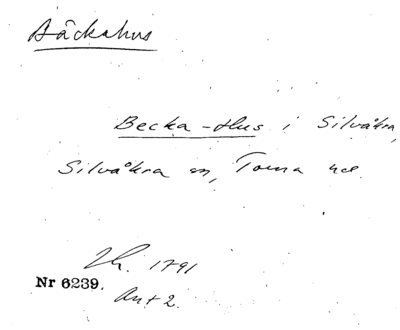 Bäckahus
Becka-Hus i Silvåkra,
Silvåkra sn, Torna hd.
1791
Nr 6239.
Ant 2.